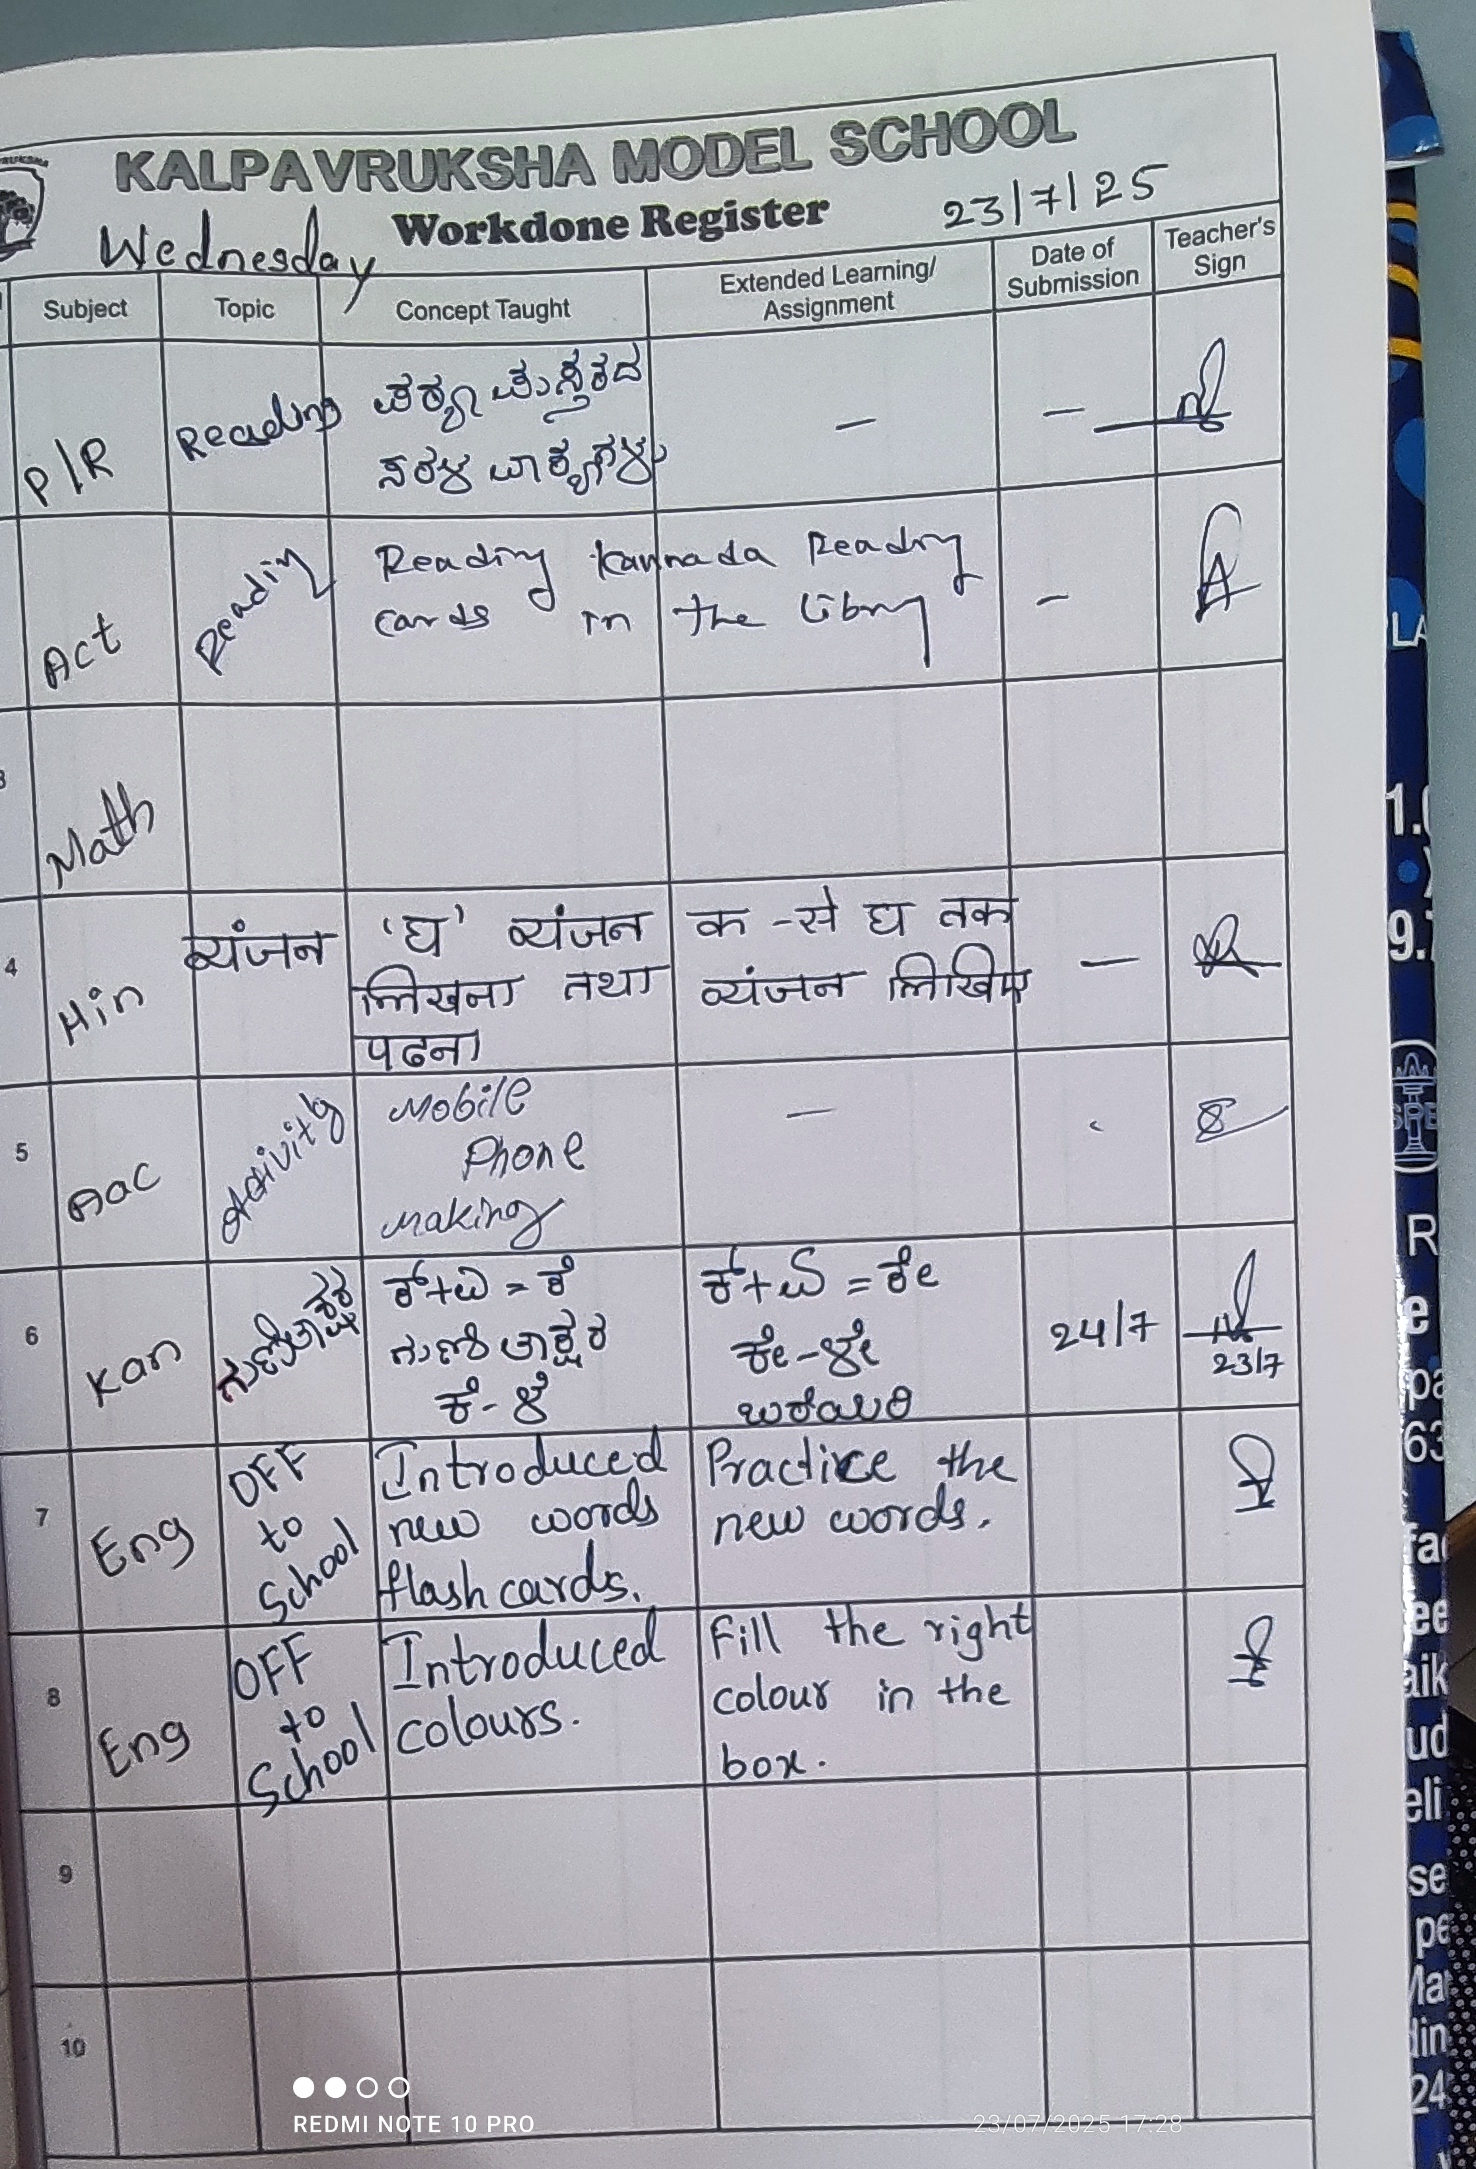 KALPAVRUKSHA MODEL SCHOOL
Wednesday Workdone Register 23/7/25
Subject Topic Concept Taught Extended Learning/ Assignment Date of Submission Teacher's Sign
P/R Reading ಪಠ್ಯ ಪುಸ್ತಕದ — —
ಸರಳ ವಾಕ್ಯಗಳು
Act Reading Reading Kannada Reading
cards in the —
3 Math
4 Hin व्यंजन 'घ' व्यंजन क - से घ तक —
लिखना तथा व्यंजन लिखिए
पढना
5 Aac Activity Mobile —
Phone
Making
6 Kan ಗುಣಿತಾಕ್ಷರ ಕ್+ಎ = ಕೆ ಕ್+ಏ = ಕೇ 24/7
ಗುಣಿತಾಕ್ಷರ ಕೇ-ಳೇ 23/7
ಕೆ-ಳೆ ಬರೆಯಿರಿ
7 Eng OFF Introduced Practice the
to new words new words.
School flash cards.
8 Eng OFF Introduced Fill the right
to colours. colour in the
School box.
9
10
REDMI NOTE 10 PRO 23/07/2025 17:28